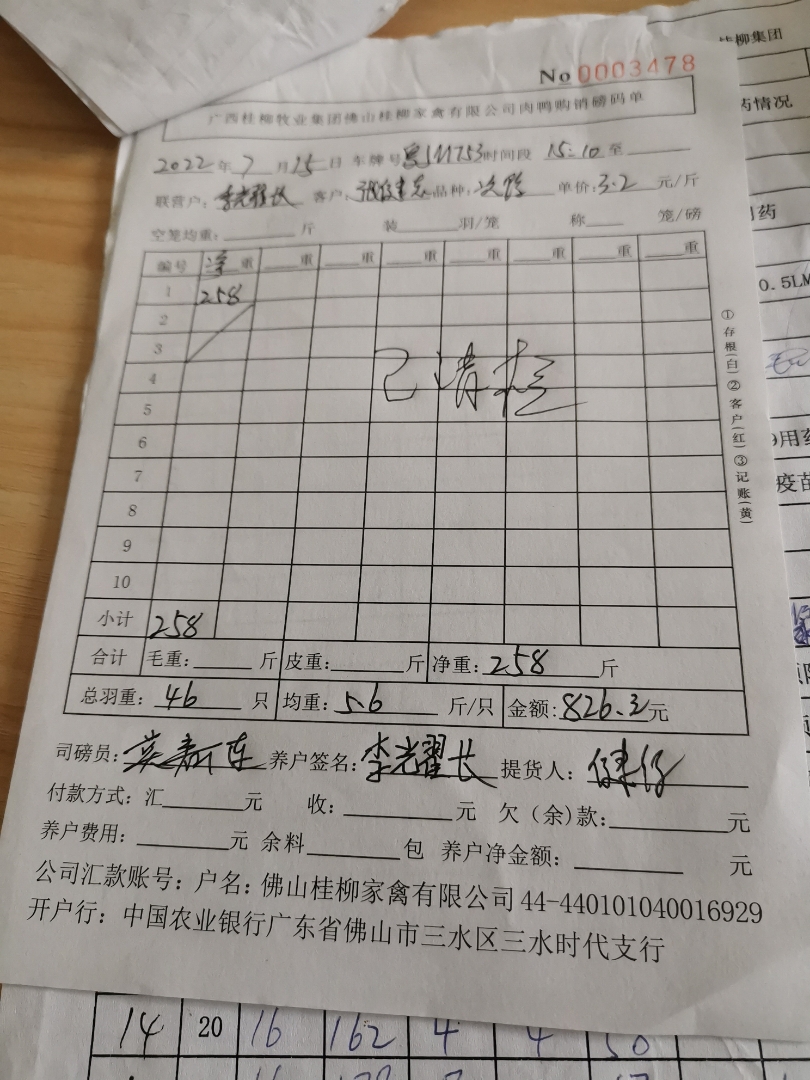 桂柳集团
No 0003478
广西桂柳牧业集团佛山桂柳家禽有限公司肉鸭购销磅码单
药情况
2022年7月15日 车牌号 时间段 15:10 至
联营户: 李光耀长 客户: 品种: 单价: 3.2 元/斤
用药
空笼均重: 斤 装 羽/笼 称 笼/磅
编号 净重 重 重 重 重 重 重 重
0.5LM
1 258
2
3
4 已清栏
5
6
7
8
9
10
小计 258
①存根(白)②客户(红)③记账(黄)
9用药
疫苗
合计 毛重: 斤 皮重: 斤 净重: 258 斤
总羽重: 46 只 均重: 5.6 斤/只 金额: 826.2元
司磅员: 养户签名: 李光耀长 提货人: 健仔
付款方式: 汇 元 收: 元 欠(余)款: 元
养户费用: 元 余料 包 养户净金额: 元
公司汇款账号: 户名: 佛山桂柳家禽有限公司44-440101040016929
开户行: 中国农业银行广东省佛山市三水区三水时代支行
14 20 16 162 4 4 50